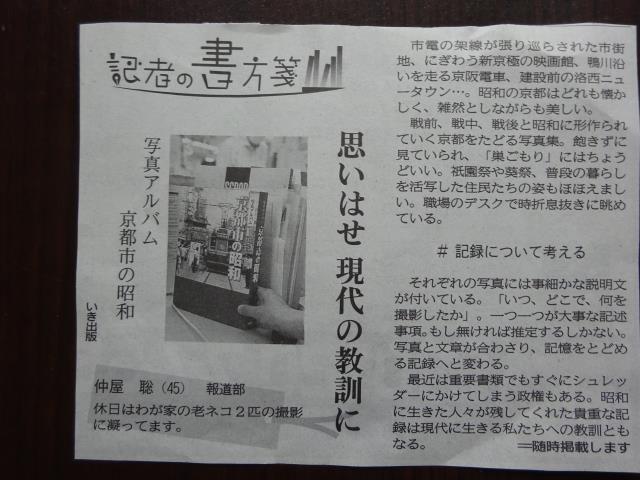 記者の書方箋
市電の架線が張り巡らされた市街
地、にぎわう新京極の映画館、鴨川沿
いを走る京阪電車、建設前の洛西ニュ
ータウン…。昭和の京都はどれも懐か
しく、雑然としながらも美しい。
戦前、戦中、戦後と昭和に形作られ
ていく京都をたどる写真集。飽きずに
見ていられ、「巣ごもり」にはちょう
どいい。祇園祭や葵祭、普段の暮らし
を活写した住民たちの姿もほほえまし
い。職場のデスクで時折息抜きに眺め
ている。
# 記録について考える
それぞれの写真には事細かな説明文
が付いている。「いつ、どこで、何を
撮影したか」。一つ一つが大事な記述
事項。もし無ければ推定するしかない。
写真と文章が合わさり、記憶をとどめ
る記録へと変わる。
最近は重要書類でもすぐにシュレッ
ダーにかけてしまう政権もある。昭和
に生きた人々が残してくれた貴重な記
録は現代に生きる私たちへの教訓とも
なる。
=随時掲載します
思いはせ 現代の教訓に
京都市の昭和
写真アルバム
京都市の昭和
いき出版
仲屋 聡(45) 報道部
休日はわが家の老ネコ2匹の撮影
に凝ってます。